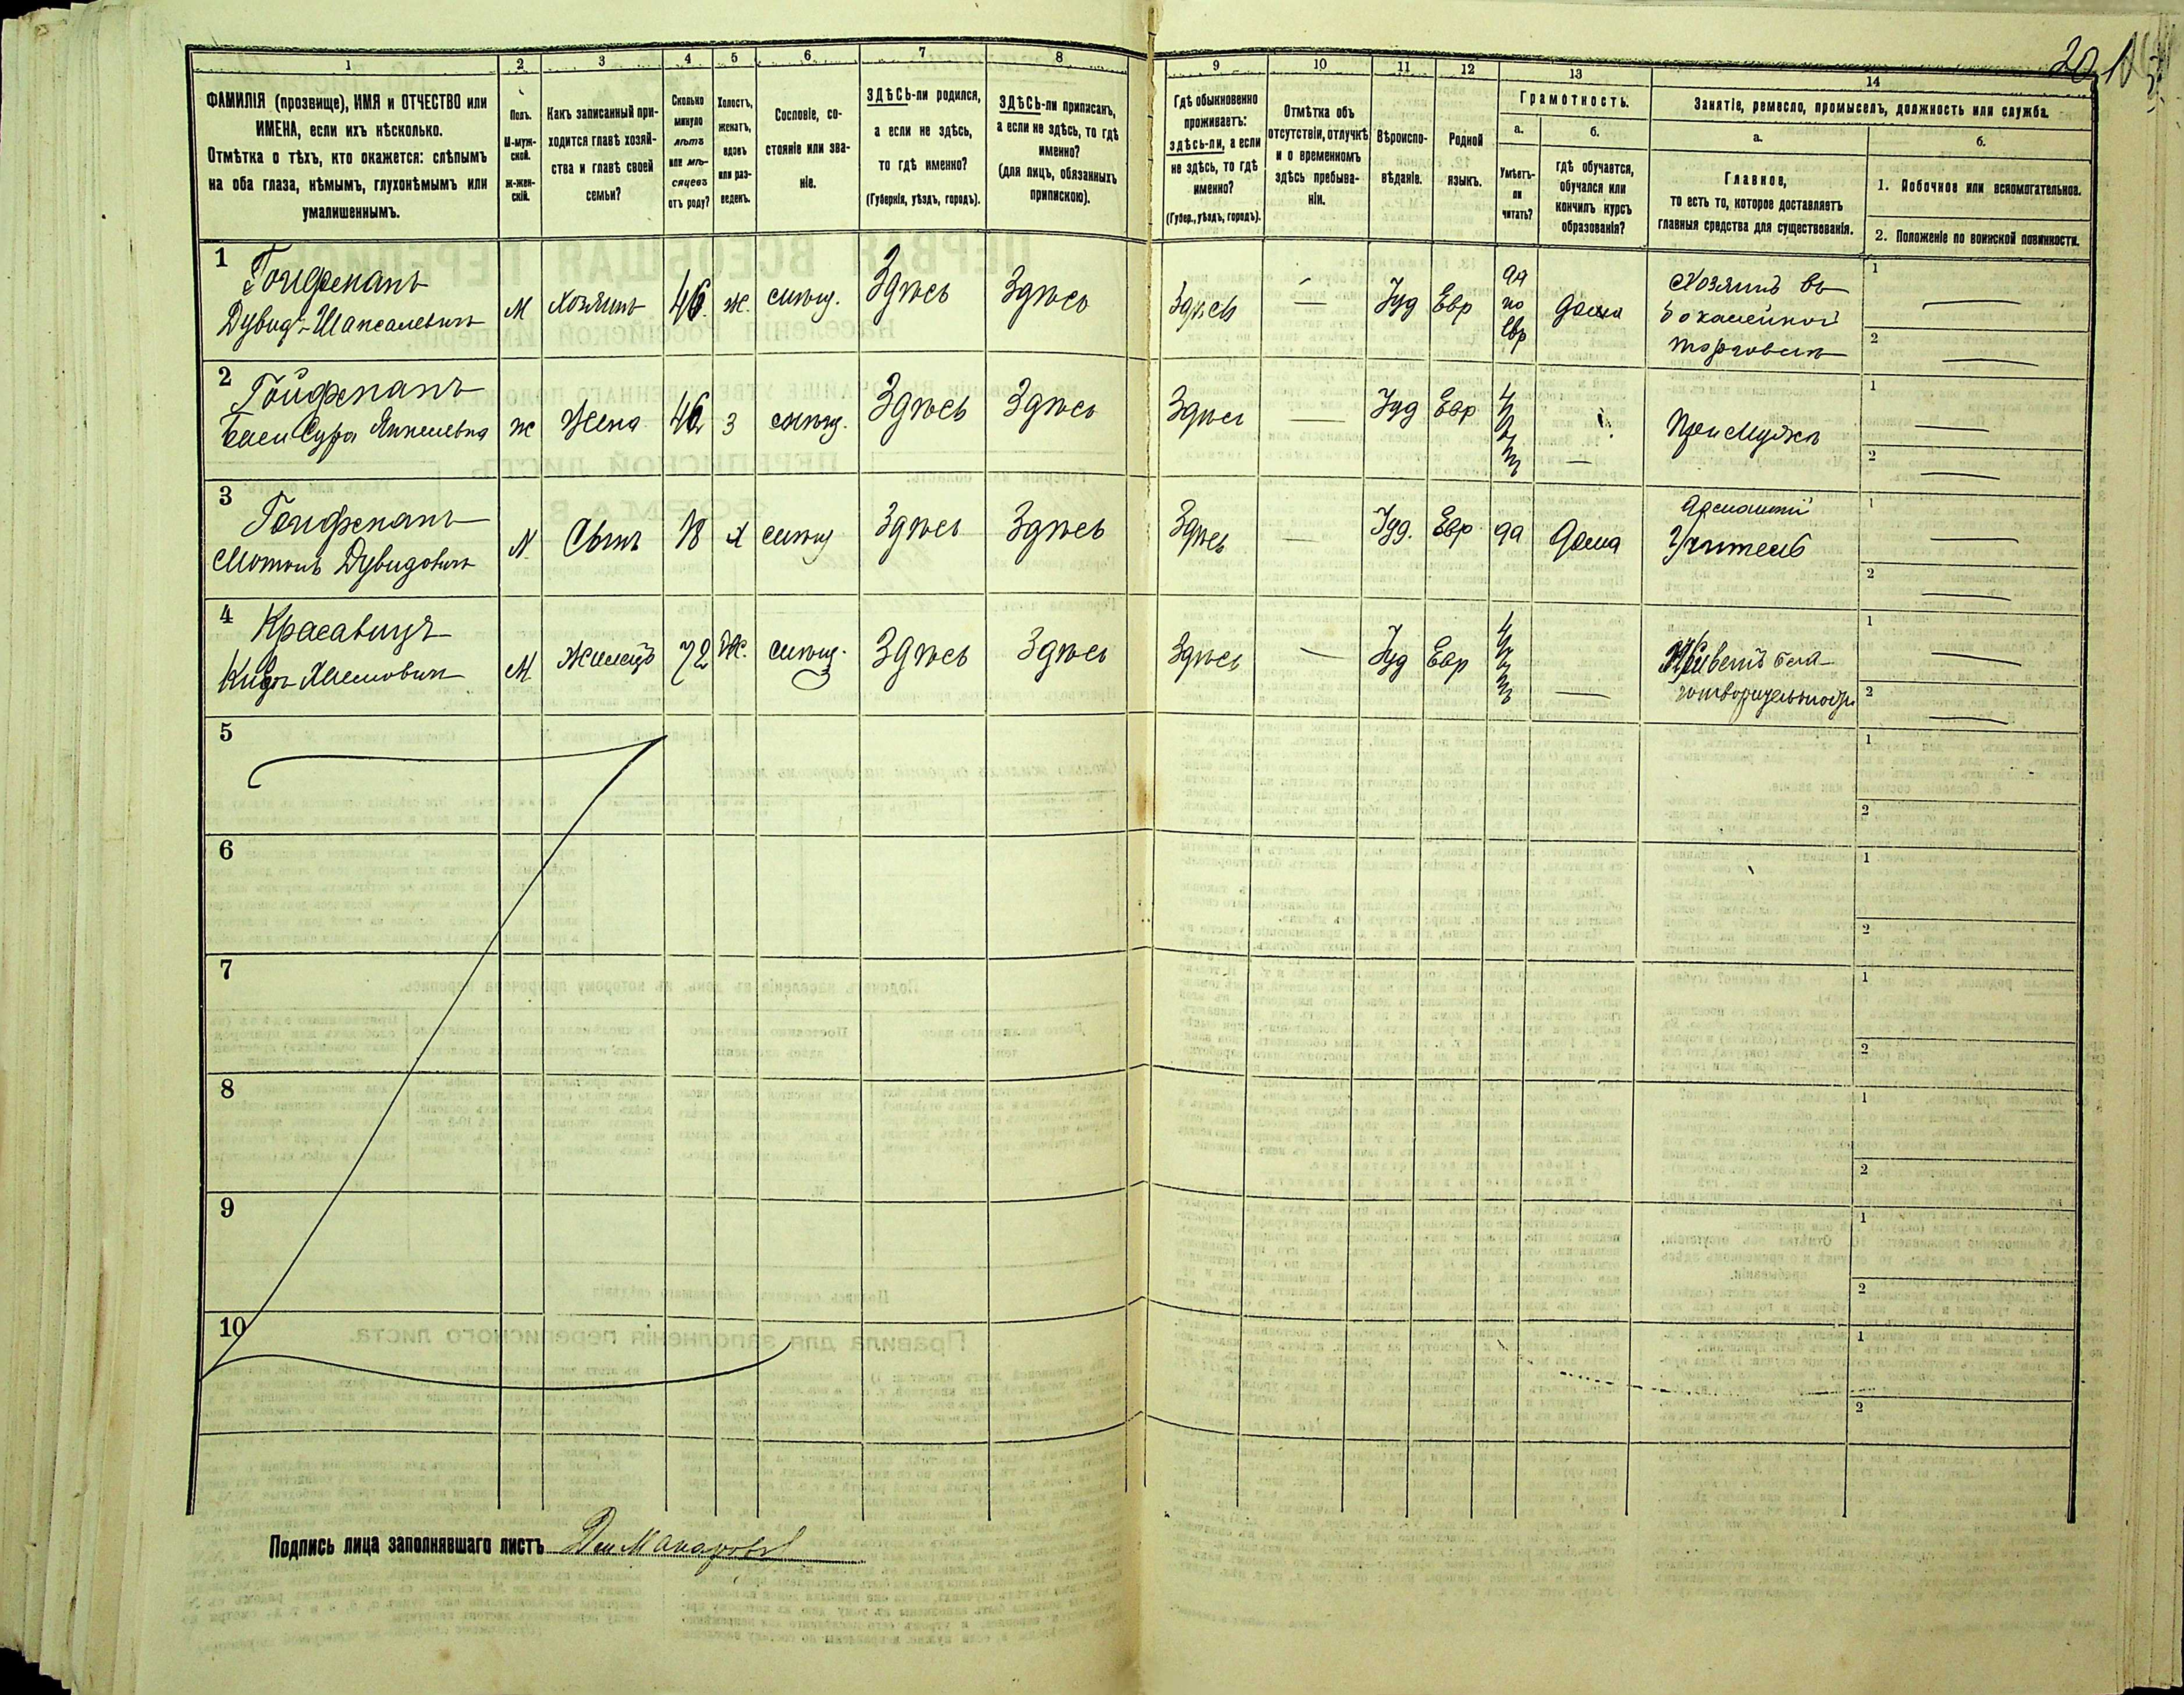 20
1 2 3 4 5 6 7 8 9 10 11 12 13 14
ФАМИЛІЯ (прозвище), ИМЯ и ОТЧЕСТВО или
ИМЕНА, если ихъ нѣсколько.
Отмѣтка о тѣхъ, кто окажется: слѣпымъ
на оба глаза, нѣмымъ, глухонѣмымъ или
умалишеннымъ.
Полъ.
М-муж-
ской.
Ж-жен-
скій.
Какъ записанный при-
ходится главѣ хозяй-
ства и главѣ своей
семьи?
Сколько
минуло
лѣтъ
или мѣ-
сяцевъ
отъ роду?
Холостъ,
женатъ,
вдовъ
или раз-
веденъ.
Сословіе, со-
стояніе или зва-
ніе.
ЗДѢСЬ-ли родился,
а если не здѣсь,
то гдѣ именно?
(Губернія, уѣздъ, городъ).
ЗДѢСЬ-ли приписанъ,
а если не здѣсь, то гдѣ
именно?
(для лицъ, обязанныхъ
припискою).
Гдѣ обыкновенно
проживаетъ:
здѣсь-ли, а если
не здѣсь, то гдѣ
именно?
(Губер., уѣздъ, городъ).
Отмѣтка объ
отсутствіи, отлучкѣ
и о временномъ
здѣсь пребыва-
ніи.
Вѣроиспо-
вѣданіе.
Родной
языкъ.
Грамотность.
а.
Умѣетъ-
ли
читать?
б.
гдѣ обучается,
обучался или
кончилъ курсъ
образованія?
Занятіе, ремесло, промыселъ, должность или служба.
а.
Главное,
то есть то, которое доставляетъ
главныя средства для существованія.
б.
1. Побочное или вспомогательное.
2. Положеніе по воинской повинности.
1
Гойфманъ
Дувидъ Шапсалевичъ
М
Хозяинъ
46.
Ж.
Здѣсь
Здѣсь
Здѣсь
—
Іуд
Евр
да
по
Евр
дома
Хозяинъ въ
бакалейной
торговли
1 —
2 —
2
Гойфманъ
Сура
Ж
Жена
З
Здѣсь
Здѣсь
Здѣсь
—
Іуд
Евр
нѣтъ
—
При Мужѣ
1 —
2 —
3
Гойфманъ
Дувидовичъ
М
Сынъ
18
Х
Здѣсь
Здѣсь
Здѣсь
—
Іуд.
Евр
да
Дома
Домашній
Учитель
1 —
2 —
4
Красавицъ
М
Жилецъ
72
Ж.
Здѣсь
Здѣсь
Здѣсь
—
Іуд
Евр
нѣтъ
—
Живетъ бла-
готворительности
1 —
2 —
5
1
2
6
1
2
7
1
2
8
1
2
9
1
2
10
1
2
Подпись лица заполнявшаго листъ